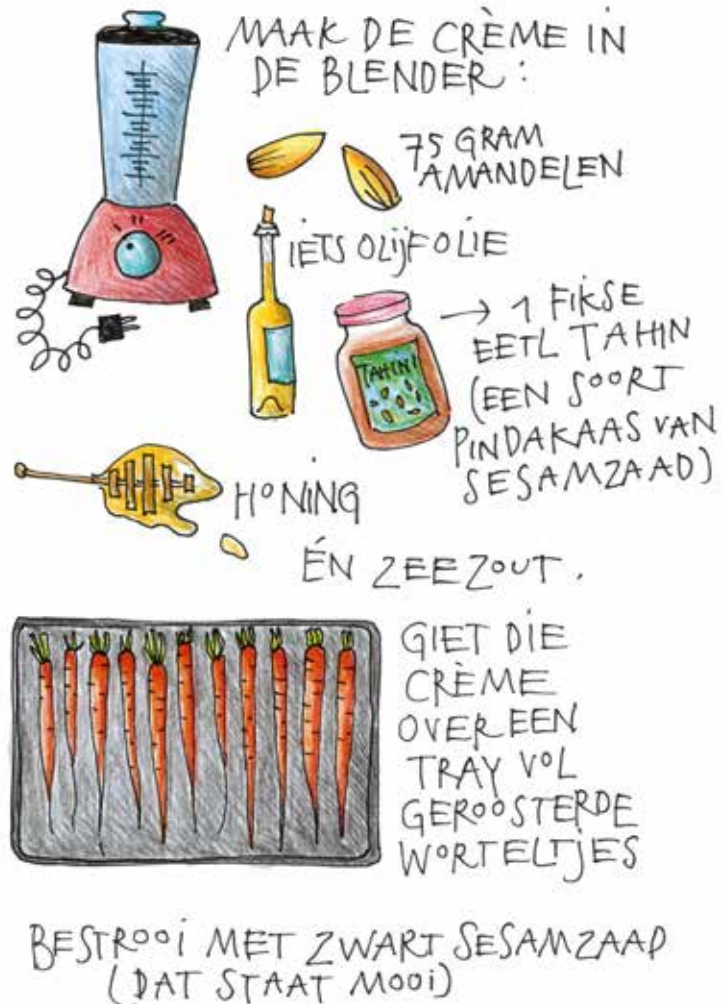 MAAK DE CRÈME IN
DE BLENDER:
75 GRAM
AMANDELEN
IETS OLIJFOLIE
TAHINI
→ 1 FIKSE
EETL TAHIN
(EEN SOORT
PINDAKAAS VAN
SESAMZAAD)
HONING
ÉN ZEEZOUT.
GIET DIE
CRÈME
OVER EEN
TRAY VOL
GEROOSTERDE
WORTELTJES
BESTROOI MET ZWART SESAMZAAD
(DAT STAAT MOOI)